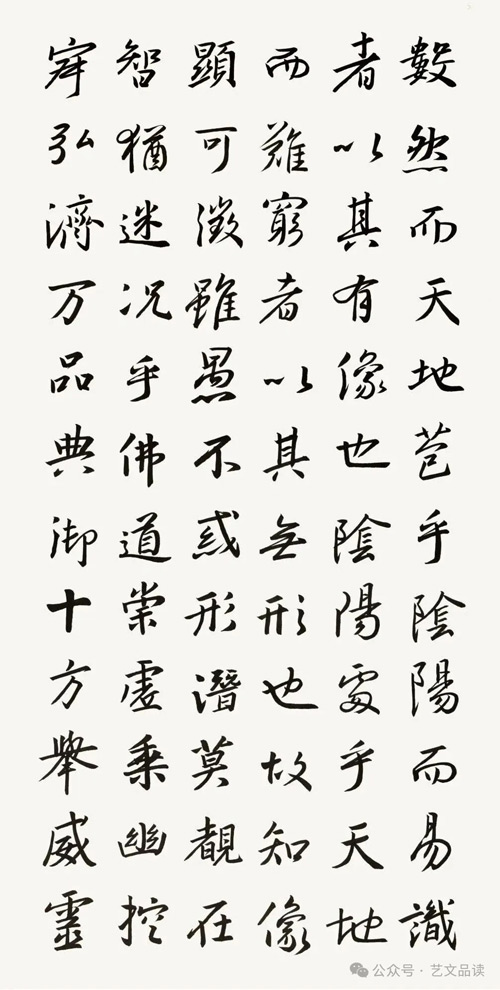 數然而天地苞乎陰陽而易識
者以其有像也陰陽處乎天地
而難窮者以其無形也故知像
顯可徵雖愚不惑形潛莫覩在
智猶迷况乎佛道崇虛乘幽控
寂弘濟万品典御十方舉威靈
公众号·艺文品读